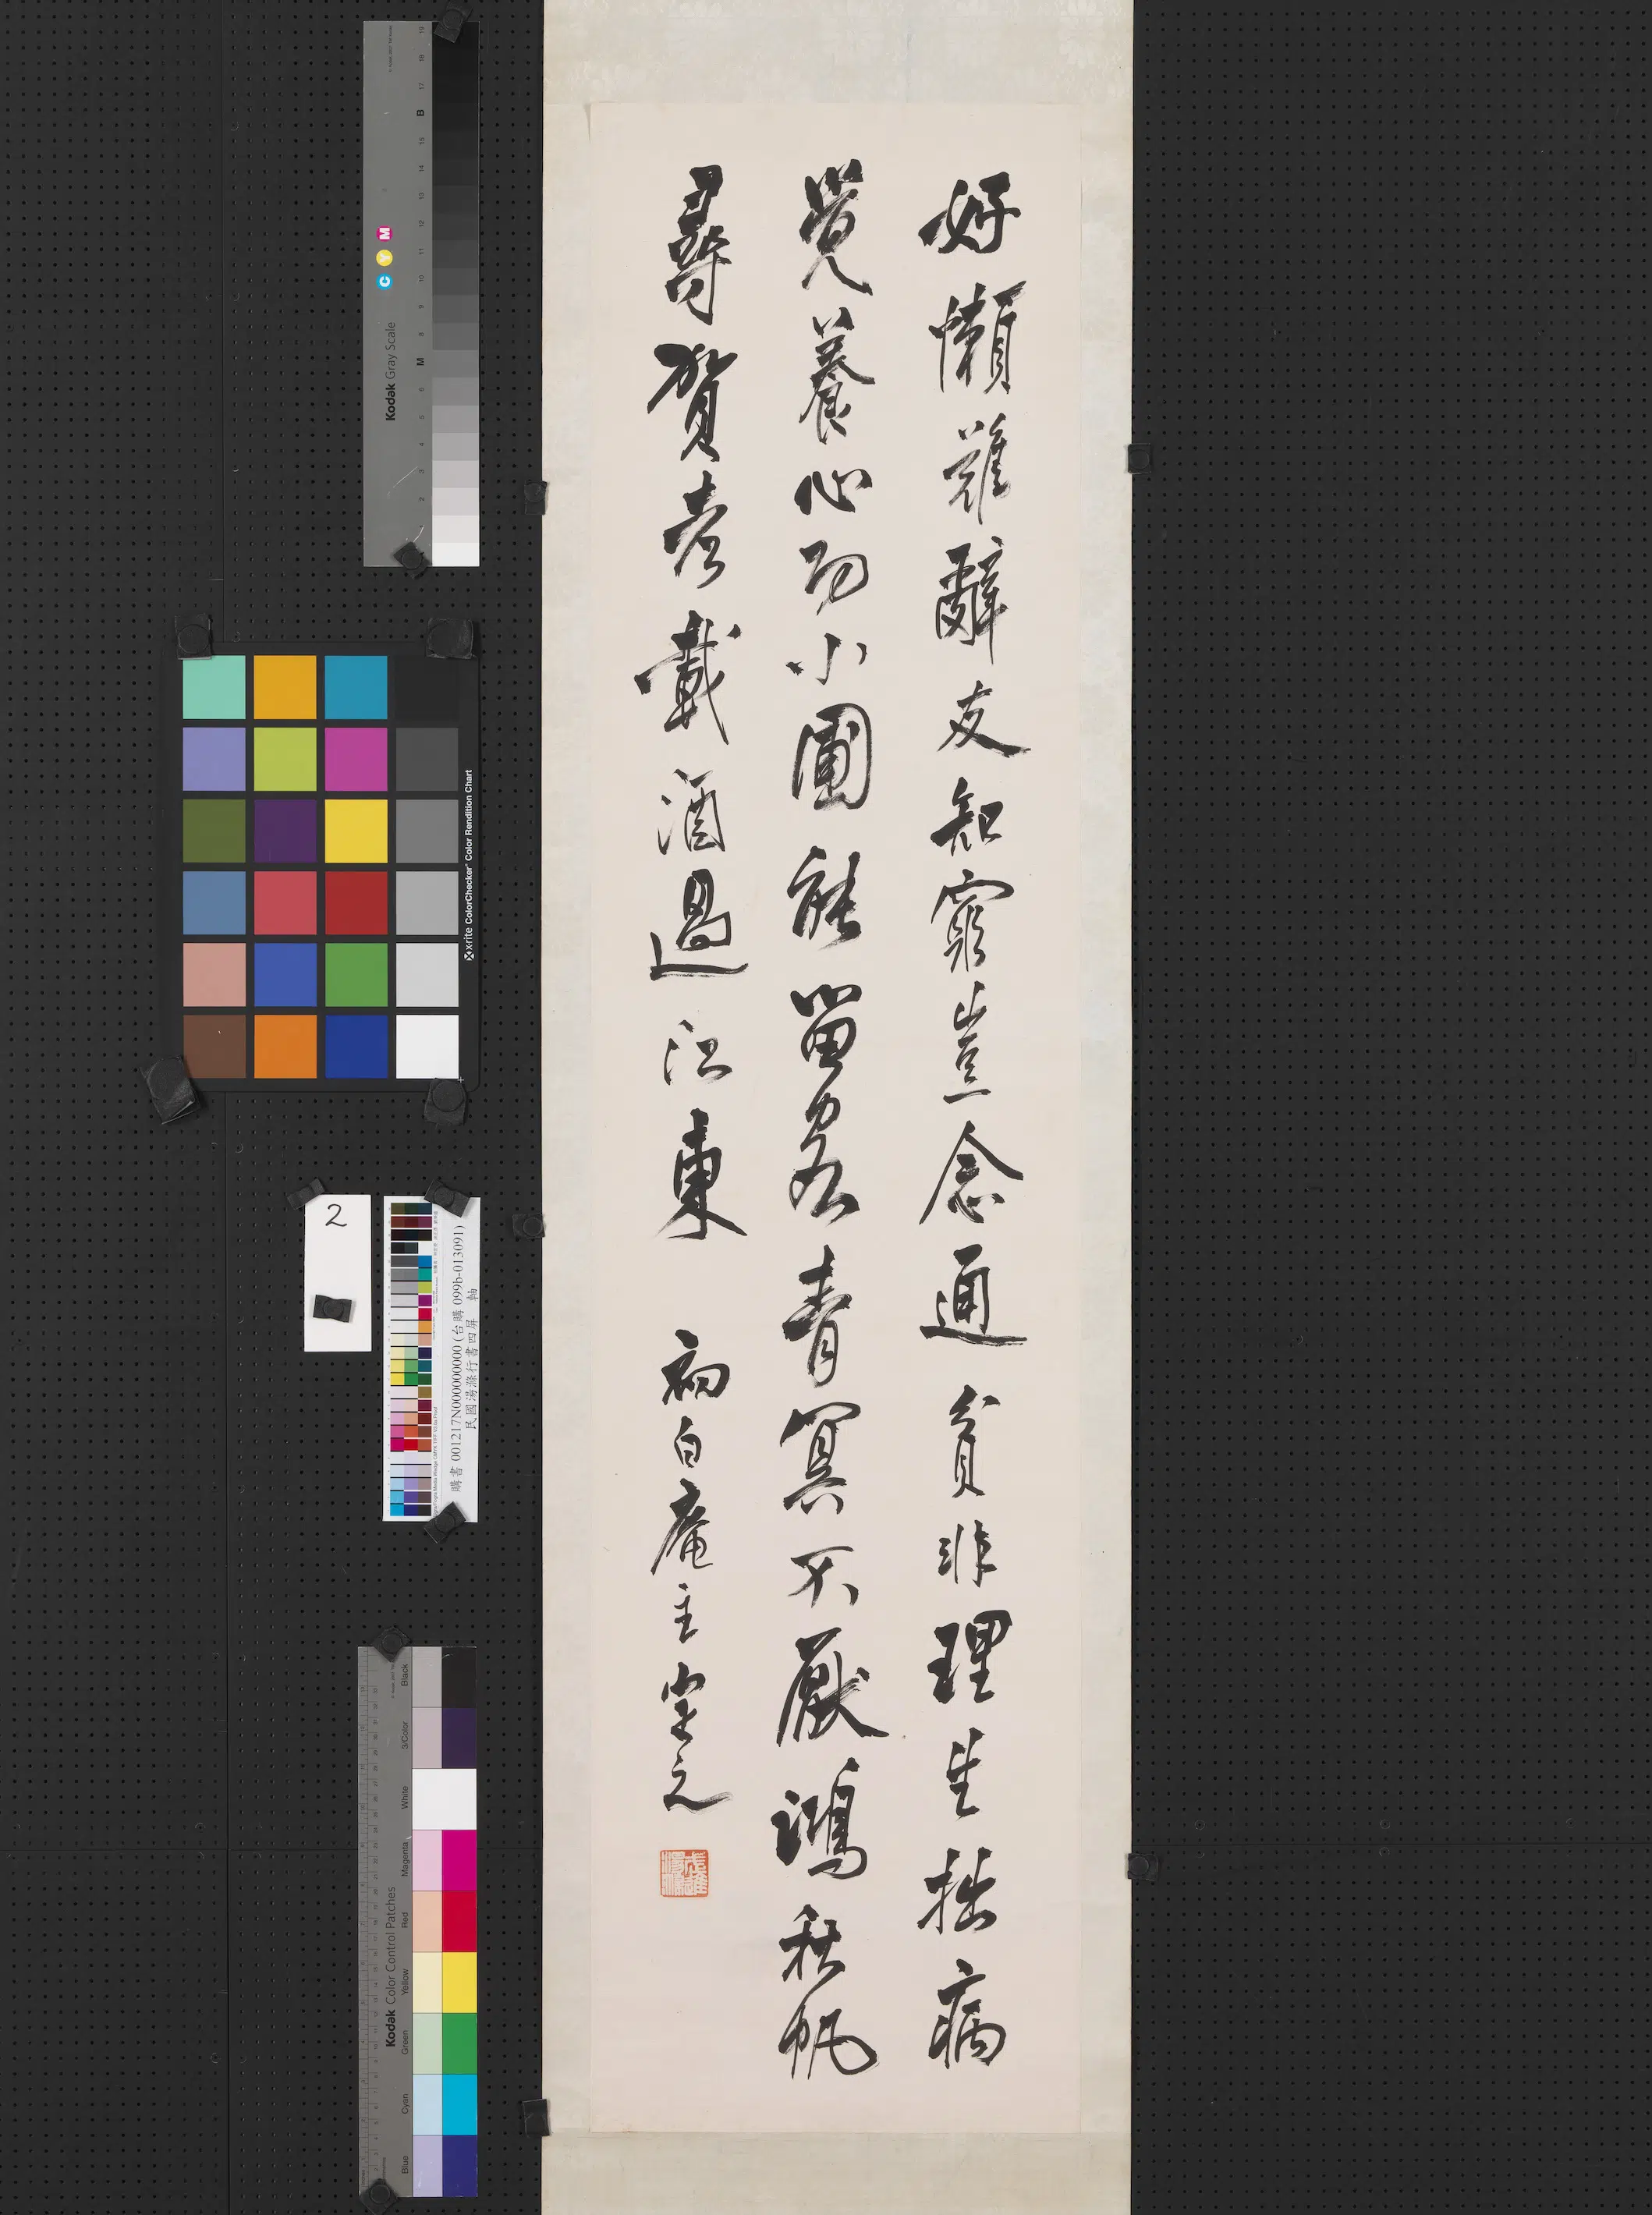 好懶難辭友知窮豈念通貧非理生拙病
覺養心功小圃能留客青冥不厭鴻秋帆
尋賀老載酒過江東 初白庵主 定之
武進湯滌
Kodak Gray Scale
C Y M
A 1 2 3 4 5 6 M 8 9 10 11 12 13 14 15 B 17 18 19
x-rite ColorChecker Color Rendition Chart
2
購書001217N000000000(台購 099b-013091)
民國湯滌行書四屏 軸
Kodak Color Control Patches
Blue Cyan Green Yellow Red Magenta White 3/Color Black